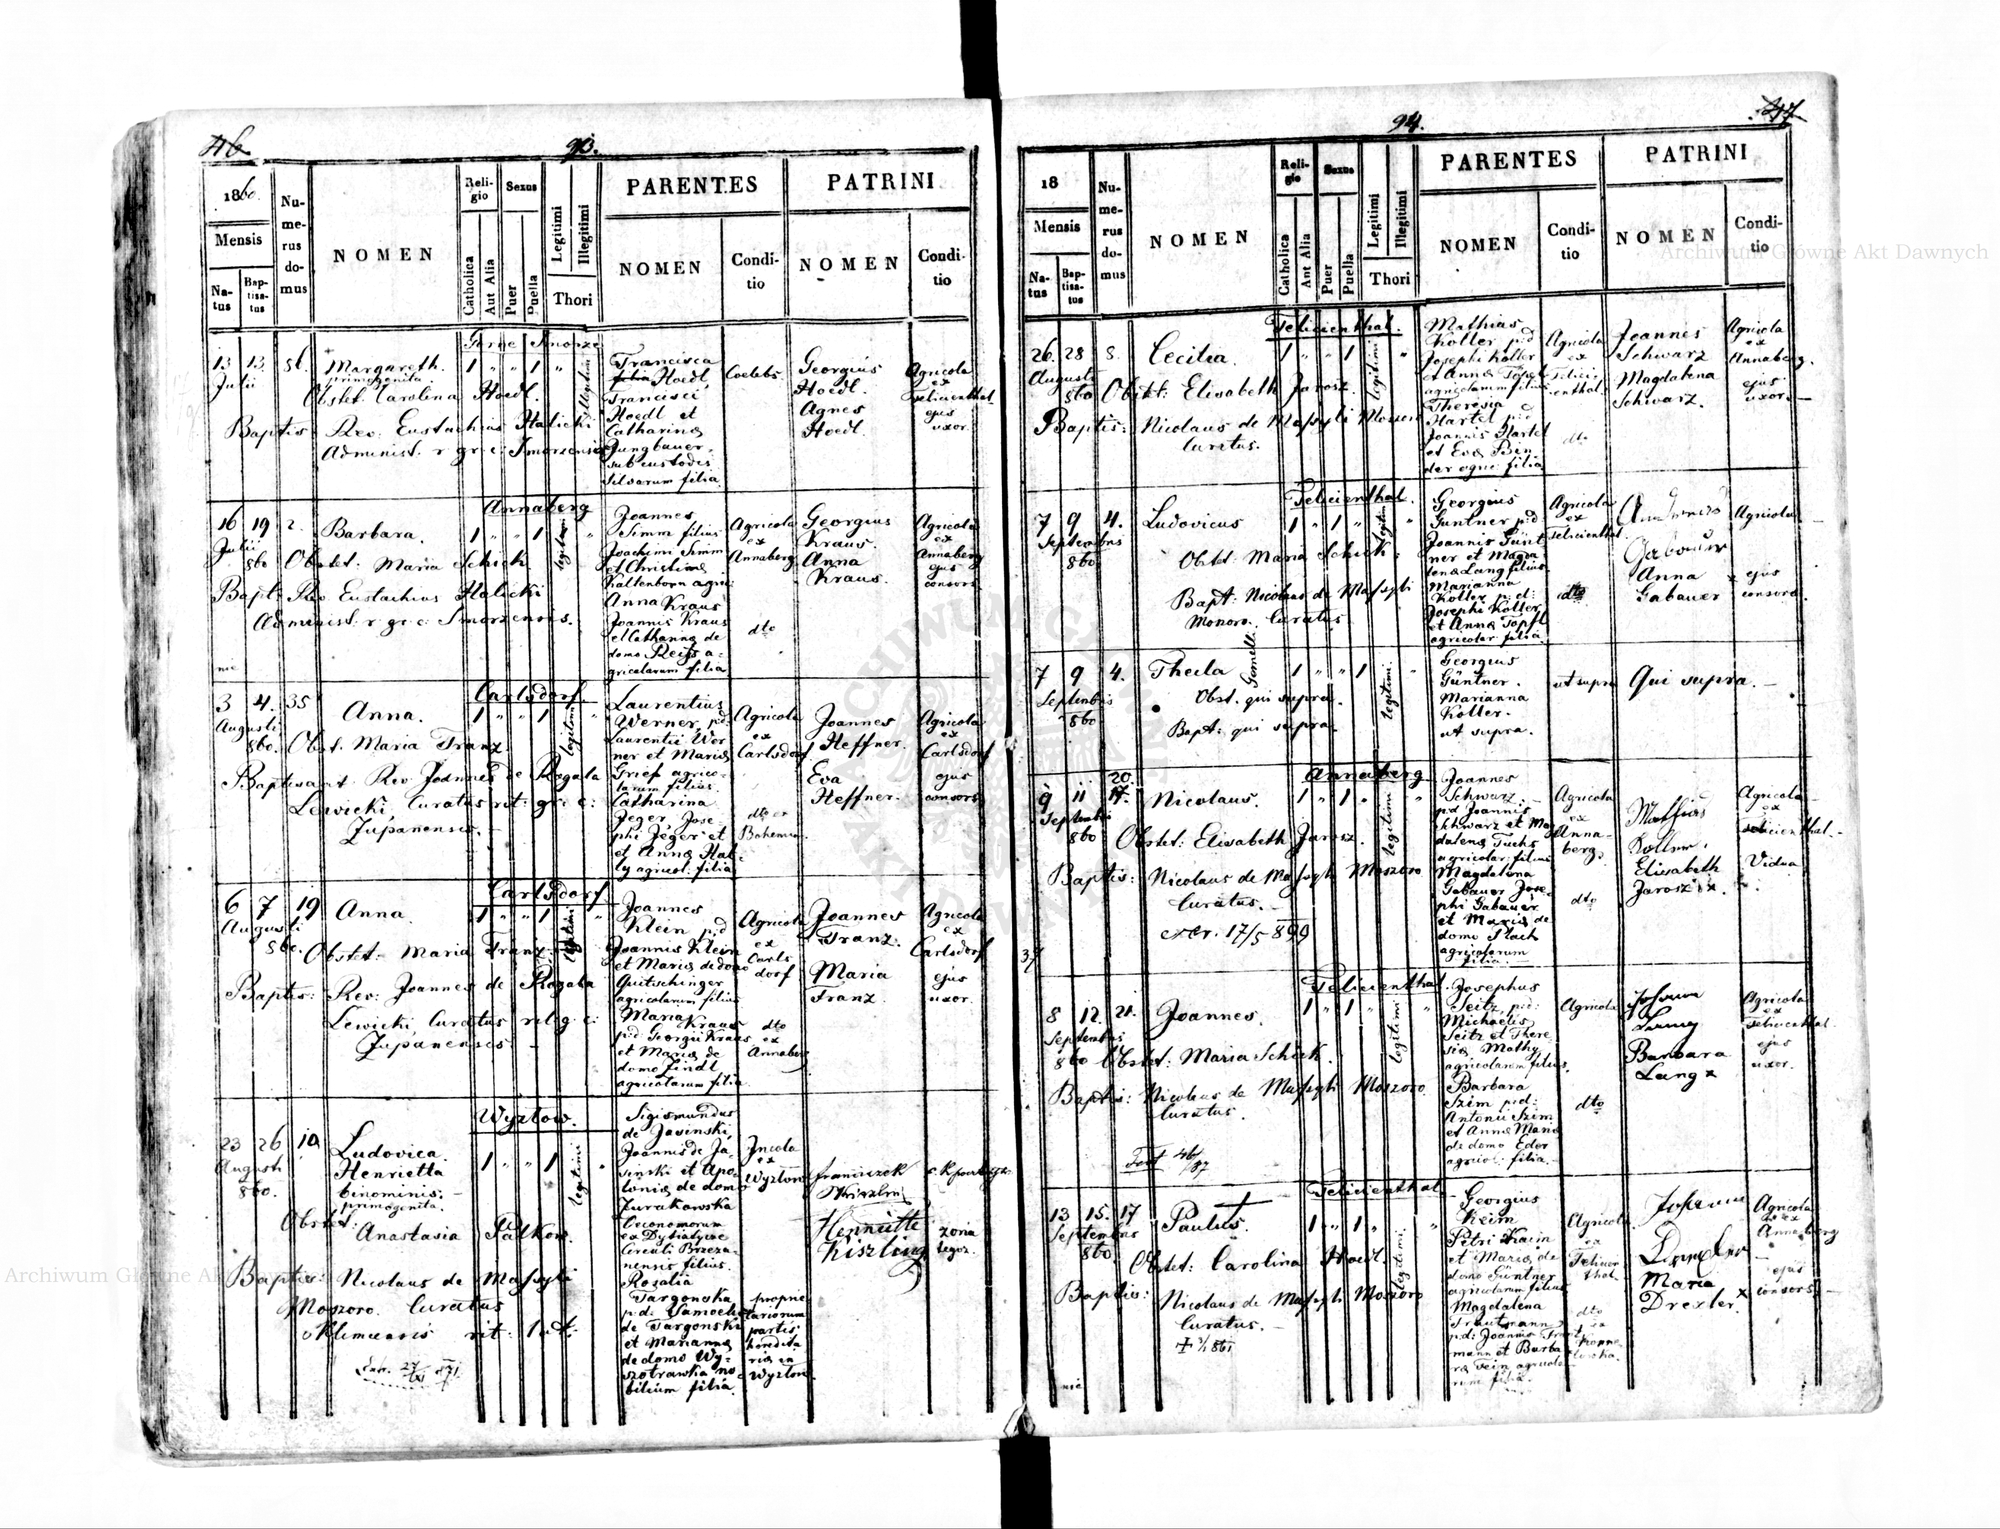 46
93.
1860.
Numerus domus
NOMEN
Religio
Sexus
Legitimi
Illegitimi
PARENTES
PATRINI
Mensis
Natus
Baptisatus
Catholica
Aut Alia
Puer
Puella
Thori
NOMEN
Conditio
NOMEN
Conditio
Gorne Smorze
13 13
Julii
Margareth.
primogenita
Obstet. Carolina Hoedl.
Baptis. Rev. Eustachius Halicki
Administ. r. gr. c. Smorzensis
1 " " 1 "
illegitimi
Francisca
Hoedl,
Francisci
Hoedl et
Catharina
Jungbauer,
subcustodis
silvarum filia.
Coelebs.
Georgius
Hoedl.
Agnes
Hoedl.
Agricola
ex
Felicienthal
ejus
uxor.
Annaberg
16 19 2.
Julii
860
Barbara.
Obstet: Maria Schick
Bapt: Rev. Eustachius Halicki
Administ. r. gr. c: Smorzensis.
1 " " 1
legitimi
Joannes
Simm filius
Joachimi Simm
et Christina
Kaltenborn agric.
Anna Kraus
Joannis Kraus
et Catharina de
domo Reiss a-
gricolarum filia
Agricola
ex
Annaberg
dto
Georgius
Kraus.
Anna
Kraus.
Agricola
ex
Annaberg
ejus
consors.
Carlsdorf
3 4. 35
Augusti
860.
Anna.
Obst. Maria Franz.
Baptisavit Rev. Joannes de Rogala
Lewicki, Curatus rit: gr: c:
Zupanensis.
1 " " 1
legitimi
Laurentius
Werner, p.d.
Laurentii Wer
ner et Maria
Grief agrico-
larum filius.
Catharina
Jeger Jose-
phi Jeger et
et Anna Hal-
ly agricol. filia
Agricola
ex
Carlsdorf
dto ex
Bohemia.
Joannes
Heffner.
Eva
Heffner.
Agricola
ex
Carlsdorf
ejus
consors
Carlsdorf
6 7 19
Augusti
860.
Anna.
Obstet: Maria Franz.
Baptis: Rev: Joannes de Rogala
Lewicki, Curatus rit. g. c:
Zupanensis
1 " " 1
legitimi
Joannes
Klein p.d
Joannis Klein
et Maria de domo
Quitschinger
agricolarum filius
Maria Kraus
p.d. Georgii Kraus
et Maria de
domo Jindl
agricolarum filia
Agricola
ex
Carls
dorf
dto
ex
Annaberg
Joannes
Franz.
Maria
Franz
Agricola
ex
Carlsdorf
ejus
uxor.
Wyztow.
23 26 10
Augusti
860.
Ludovica
Henrietta
binominis.
primogenita.
Obstet:
Anastasia Palkow.
Baptis: Nicolaus de Massyli
Moszoro. Curatus
Klimecensis rit: lat:
1 " " 1
legitimi
Sigismundus
de Jasinski,
Joannis de Ja-
sinski et Apo-
lonia de domo
Zurakowska
Oeconomorum
ex Dybialycze
Circuli Brzeza-
nensis filius.
Rozalia
Targonska
p.d: Samoelis
de Targonski
et Marianna
de domo Wy-
szotrawka no-
bilium filia.
Incola
ex
Wyztow
proprie
tariorum
partis
heredita
ria in
Wyztow
Franciszek
Henriette
Kiszling
94.
47
18
Mensis
Natus
Baptisatus
Numerus domus
NOMEN
Religio
Sexus
Legitimi
Illegitimi
PARENTES
PATRINI
Catholica
Aut Alia
Puer
Puella
Thori
NOMEN
Conditio
NOMEN
Conditio
Felicienthal.
26. 28 8.
Augusti
860
Cecilia.
Obstet: Elisabeth Jarosz.
Baptis: Nicolaus de Massyli Moszoro
Curatus.
1 " " 1
legitimi
Mathias
Koller p.d
Josephi Koller
et Anna Töpfl
agricolarum filius
Theresia
Hartel p.d
Joannis Hartel
et Eva Ben
der agric: filia
Agricola
ex
Felici-
enthal.
dto
Joannes
Schwarz
Magdalena
Schwarz.
Agricola
ex
Annaberg.
ejus
uxor.
Felicienthal.
7 9 4.
Septembris
860
Ludovicus
Obstet: Maria Schick:
Bapt: Nicolaus de Massyli
Moszoro. Curatus
1 " 1 "
legitimi
Georgius
Guntner p.d
Joannis Günt
ner et Magda
lena Lang filius
Marianna
Koller p.d:
Josephi Koller
et Anna Töpfl
agricolar filia.
Agricola
ex
Felicienthal.
dto
Andreas
Gabauer
Anna x
Gabauer
Agricola
ejus
consors.
7 9 4.
Septembris
860
Thecla
Gemelli
Obst. qui supra.
Bapt: qui supra.
1 " " 1
legitimi.
Georgius
Güntner.
Marianna
Koller.
ut supra.
ut supra
Qui supra.
Annaberg
20.
9 11 17.
Septembris
860
Nicolaus.
Obstet: Elisabeth Jarosz
Baptis: Nicolaus de Massyli Moszoro
Curatus.
extr. 17/5 899
37
1 " 1 "
legitimi
Joannes
Schwarz.
p.d Joannis
Schwarz et Mag
dalena Fuchs
agricolar. filius
Magdalena
Gabauer Jose-
phi Gabauer
et Maria de
domo Plach
agricolarum
filia.
Agricola
ex
Anna-
berg.
dto
Mathias
Koller.
Elisabeth
Jarosz x
Agricola
ex
Felicienthal.
Vidua
Felicienthal.
8 12. 21.
Septembris
860
Joannes.
Obstet: Maria Schick.
Baptis: Nicolaus de Massyli Moszoro
Curatus.
Test 46/87
1 " 1 "
legitimi
Josephus
Seitz, p.d:
Michaelis
Seitz et There
sia Mathy
agricolarum filius.
Barbara
Szim p.d:
Antonii Szim
et Anna Maria
de domo Eder
agricol: filia.
Agricola
dto
Johann
Lang
Barbara
Lang x
Agricola
ex
Felicienthal.
ejus
uxor.
Felicienthal
13 15. 17
Septembris
860.
Paulus.
Obstet: Carolina Hoedl.
Baptis: Nicolaus de Massyli Moszoro
Curatus.
1 " 1 "
legitimi.
Georgius
Keim
Petri Kaim
et Maria de
domo Güntner
agricolarum filius
Magdalena
Trautmann
p.d: Joannis Traut
mann et Barba
ra Fein agricola
rum filia.
Agricola
ex
Felicien
thal.
dto
ex
Johann
Drexler
Maria x
Drexler.
Agricola
ex
Annaberg
ejus
consors.
Archiwum Główne Akt Dawnych